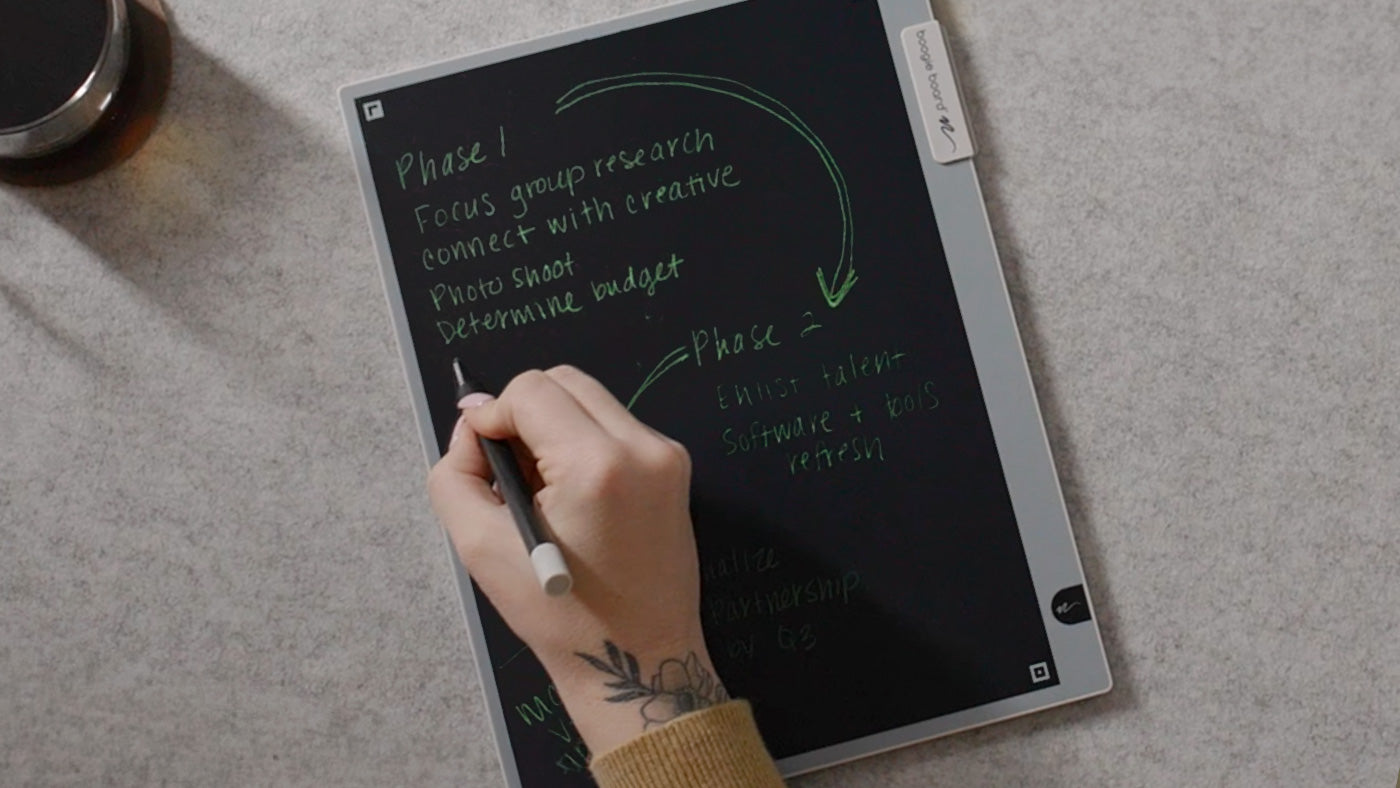 boogie board
Phase 1
Focus group research
connect with creative
Photo shoot
Determine budget
Phase 2
Enlist talent
Software + tools
refresh
partnership
by Q3